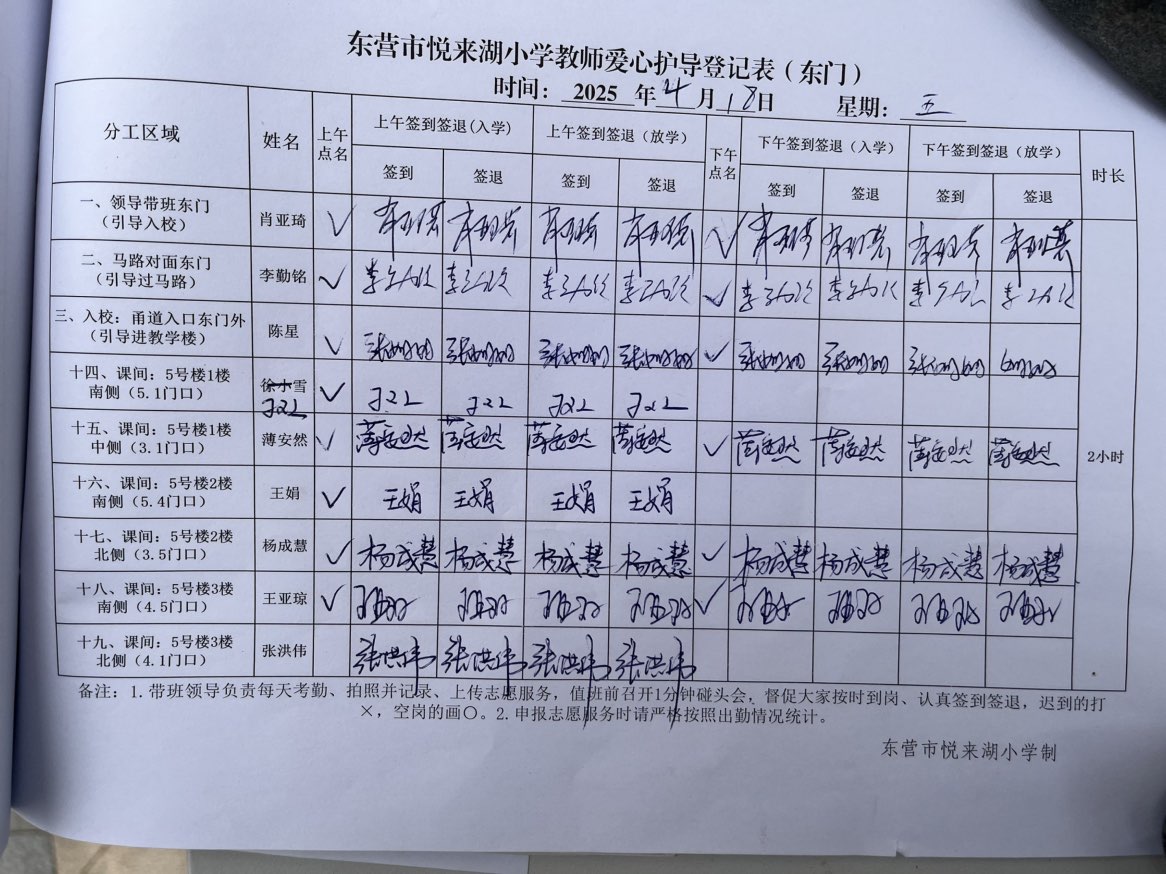 东营市悦来湖小学教师爱心护导登记表（东门）
时间： 2025 年 4 月 18 日 星期： 五
分工区域 姓名 上午点名 上午签到签退(入学) 上午签到签退（放学） 下午点名 下午签到签退（入学） 下午签到签退（放学） 时长
签到 签退 签到 签退 签到 签退 签到 签退
一、领导带班东门
（引导入校） 肖亚琦 ✓ ✓
二、马路对面东门
（引导过马路） 李勤铭 ✓ ✓
三、入校：甬道入口东门外
（引导进教学楼） 陈星 ✓ ✓
十四、课间：5号楼1楼
南侧（5.1门口） 徐小雪 ✓
十五、课间：5号楼1楼
中侧（3.1门口） 薄安然 ✓ 薄安然 薄安然 薄安然 薄安然 ✓ 薄安然 薄安然 薄安然 薄安然
2小时
十六、课间：5号楼2楼
南侧（5.4门口） 王娟 ✓ 王娟 王娟 王娟 王娟
十七、课间：5号楼2楼
北侧（3.5门口） 杨成慧 ✓ 杨成慧 杨成慧 杨成慧 杨成慧 ✓ 杨成慧 杨成慧 杨成慧 杨成慧
十八、课间：5号楼3楼
南侧（4.5门口） 王亚琼 ✓ ✓
十九、课间：5号楼3楼
北侧（4.1门口） 张洪伟 张洪伟 张洪伟 张洪伟 张洪伟
备注：1.带班领导负责每天考勤、拍照并记录、上传志愿服务，值班前召开1分钟碰头会，督促大家按时到岗、认真签到签退，迟到的打
×，空岗的画〇。2.申报志愿服务时请严格按照出勤情况统计。
东营市悦来湖小学制